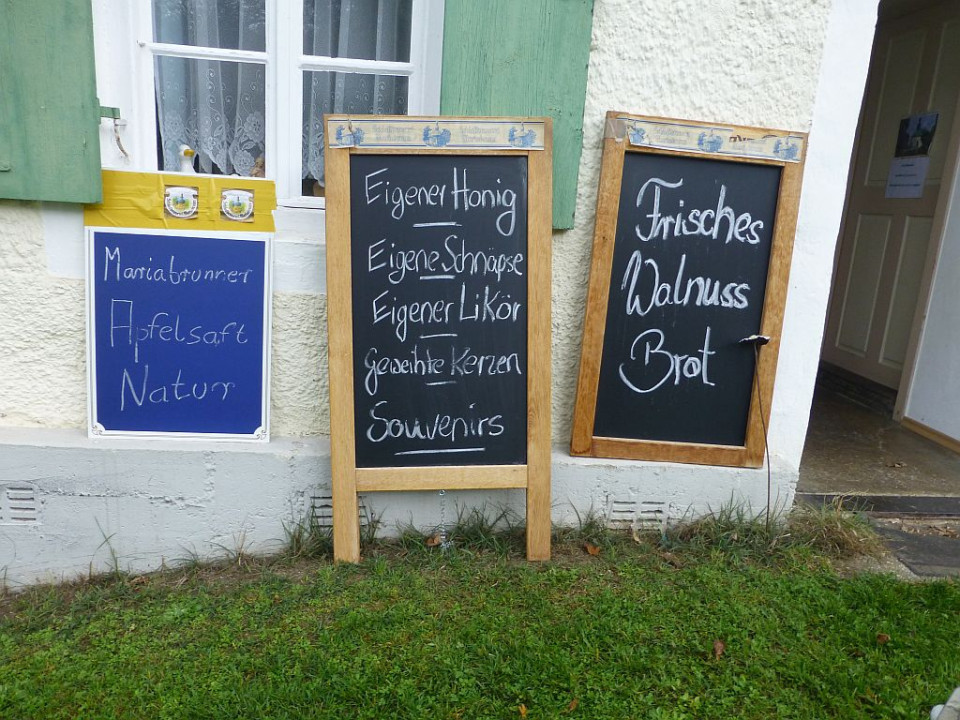 Mariabrunner
Apfelsaft
Natur
Eigener Honig
Eigene Schnäpse
Eigener Likör
geweihte Kerzen
Souvenirs
Frisches
Walnuss
Brot